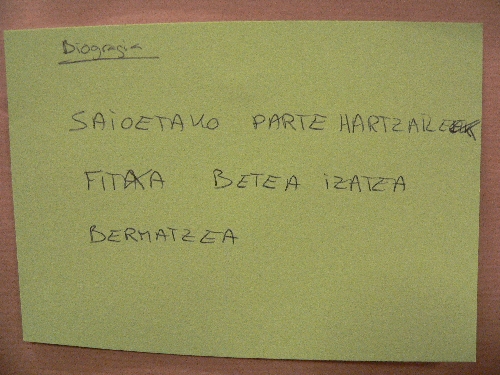 Biogragia
SAIOETAKO PARTE HARTZAILE
FITXA BETEA IZATEA
BERMATZEA